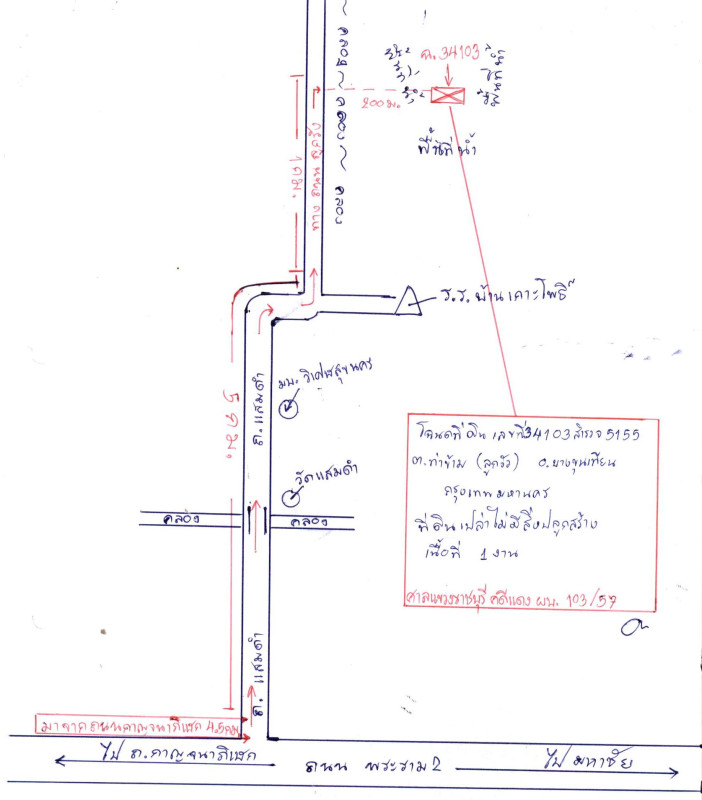 คลอง ~ คลอง ~ คลอง
ฉ. 34103
200 ม.
พื้นที่น้ำ
1 กม.
ร.ร. บ้านเกาะโพธิ์
5 กม.
ถ. แสมดำ
วัดแสมดำ
คลอง
คลอง
โฉนดที่ดิน เลขที่ 34103 สำรวจ 5155
ต. ท่าข้าม (ลูกวัว) อ. บางขุนเทียน
กรุงเทพมหานคร
ที่ดินเปล่าไม่มีสิ่งปลูกสร้าง
เนื้อที่ 1 งาน
ศาลแขวงราชบุรี คดีแดง ผบ. 103/57
ถ. แสมดำ
มาจากถนนกาญจนาภิเษก 4.5 กม
ไป ถ. กาญจนาภิเษก
ถนน พระราม 2
ไป มหาชัย